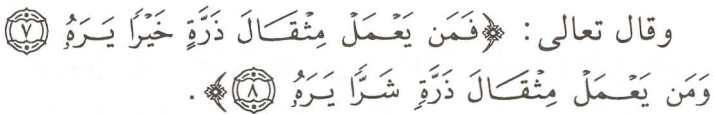 وقال تعالى: ﴿فَمَن يَعْمَلْ مِثْقَالَ ذَرَّةٍ خَيْرًا يَرَهُۥ ۝٧
وَمَن يَعْمَلْ مِثْقَالَ ذَرَّةٍ شَرًّا يَرَهُۥ ۝٨﴾.